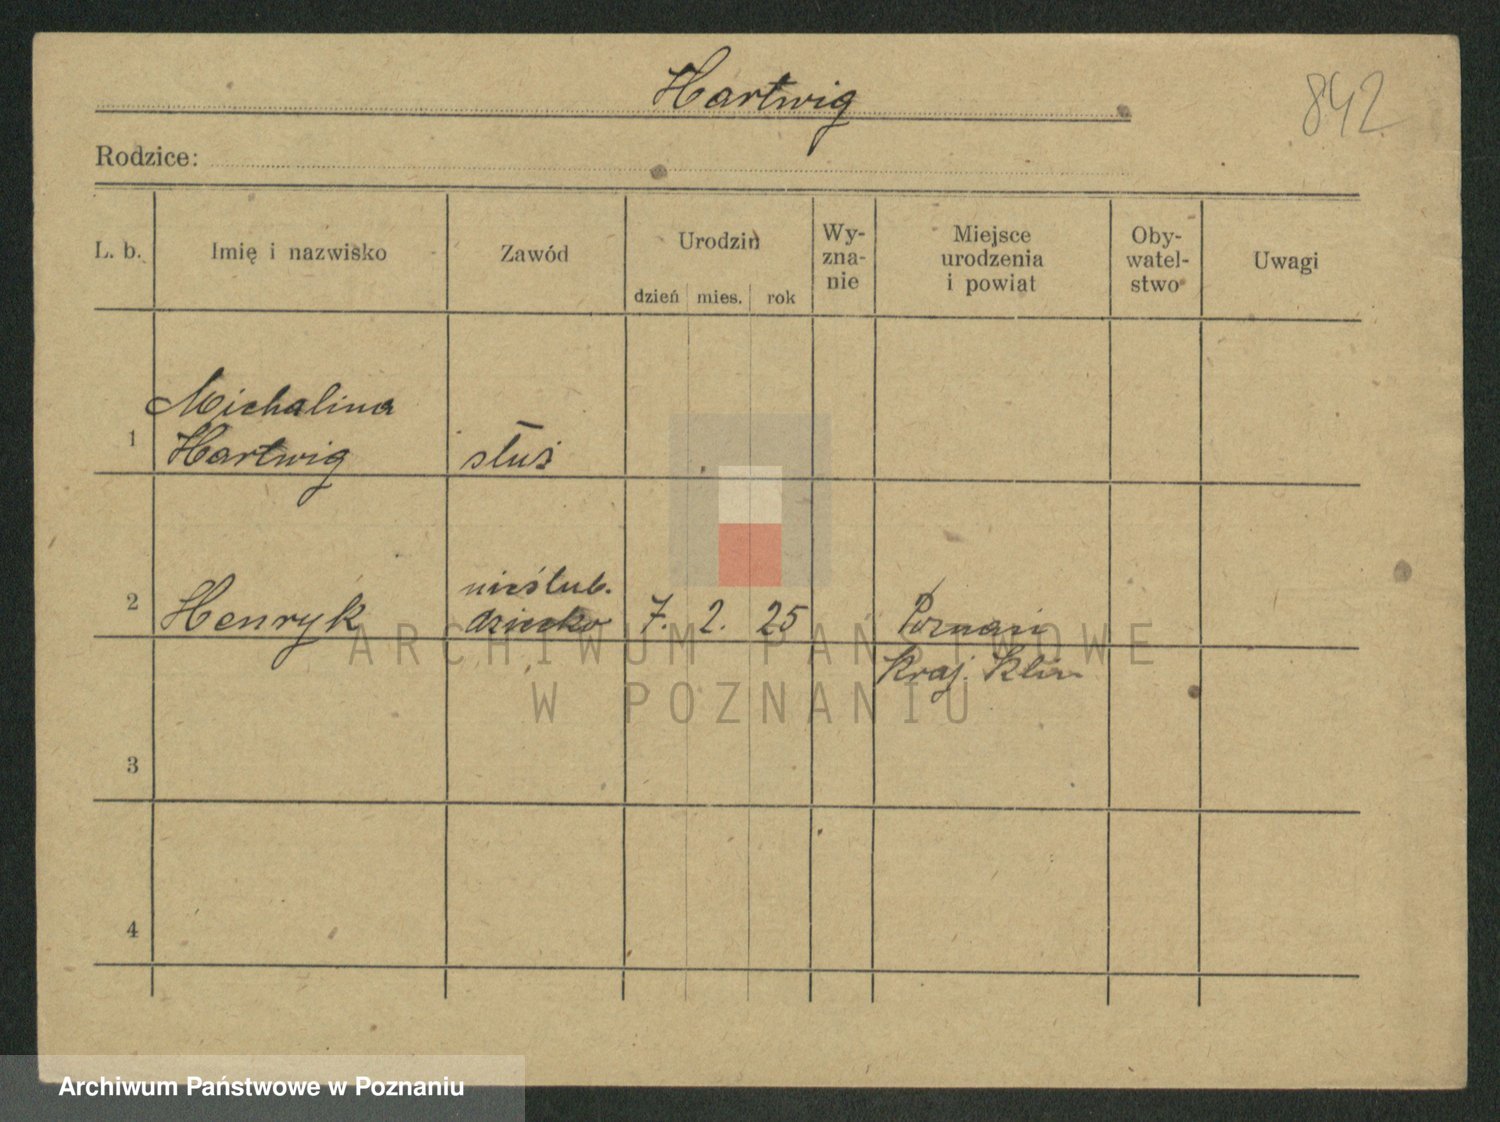 Hartwig
842
Rodzice:
L. b.
Imię i nazwisko
Zawód
Urodzin
dzień
mies.
rok
Wy-
zna-
nie
Miejsce
urodzenia
i powiat
Oby-
watel-
stwo
Uwagi
1
Michalina
Hartwig
służ
2
Henryk
nieślub.
dziecko
7. 2. 25
Poznań
Kraj. Klin
3
4
ARCHIWUM PAŃSTWOWE
W POZNANIU
Archiwum Państwowe w Poznaniu